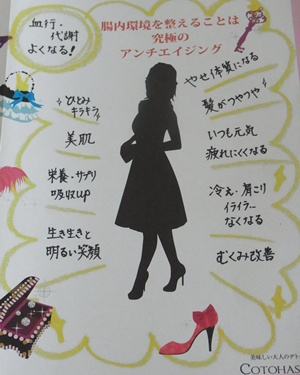 血行・
代謝
よくなる!
腸内環境を整えることは
究極の
アンチエイジング
ひとみ
キラキラ
美肌
栄養・サプリ
吸収up
生き生きと
明るい笑顔
やせ体質になる
髪がつやつや
いつも元気
疲れにくくなる
冷え・肩こり
イライラ
なくなる
むくみ改善
美味しい大人のデト
COTOHAS